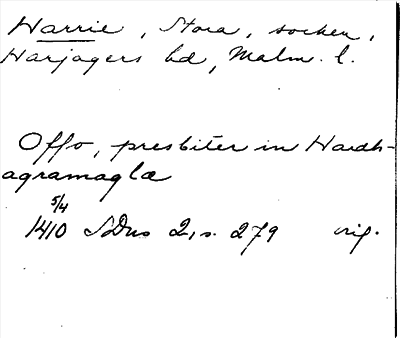 Harrie, Stora, socken,
Harjagers hd, Malm. l.
Offo, presbiter in Hardh-
agramagle
5/4
1410 SDns 2, s. 279 orig.